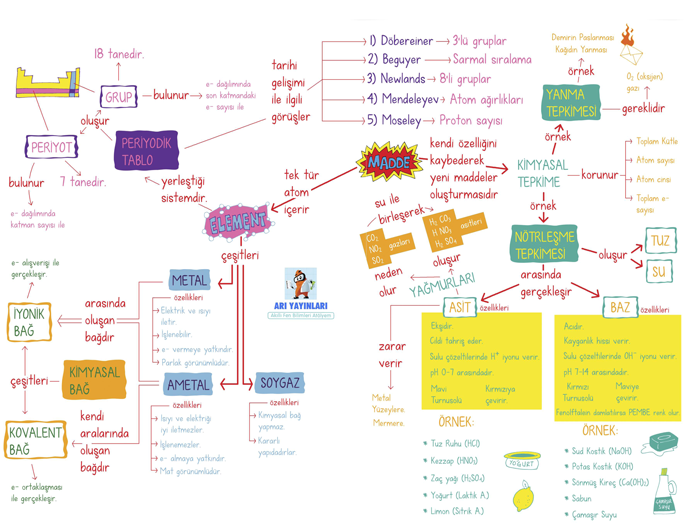 18 tanedir.
GRUP
bulunur
e- dağılımında
son katmandaki
e- sayısı ile
oluşur
PERİYOT
bulunur
7 tanedir.
e- dağılımında
katman sayısı ile
PERİYODİK
TABLO
yerleştiği
sistemdir.
tarihi
gelişimi
ile ilgili
görüşler
1) Döbereiner
3'lü gruplar
2) Beguyer
Sarmal sıralama
3) Newlands
8'li gruplar
4) Mendeleyev
Atom ağırlıkları
5) Moseley
Proton sayısı
MADDE
tek tür
atom
içerir
ELEMENT
çeşitleri
kendi özelliğini
kaybederek
yeni maddeler
oluşturmasıdır
KİMYASAL
TEPKİME
örnek
YANMA
TEPKİMESİ
örnek
Demirin Paslanması
Kağıdın Yanması
gereklidir
O₂ (oksijen)
gazı
korunur
Toplam Kütle
Atom sayısı
Atom cinsi
Toplam e-
sayısı
örnek
NÖTRLEŞME
TEPKİMESİ
oluşur
TUZ
SU
arasında
gerçekleşir
su ile
birleşerek
CO₂
NO₂ gazları
SO₂
H₂ CO₃
H NO₃ asitleri
H₂ SO₄
neden
olur
oluşur
YAĞMURLARI
ASİT
özellikleri
Ekşidir.
Cildi tahriş eder.
Sulu çözeltilerinde H⁺ iyonu verir.
pH 0-7 arasındadır.
Mavi Kırmızıya
Turnusolü çevirir.
zarar
verir
Metal
Yüzeylere
Mermere
ÖRNEK:
* Tuz Ruhu (HCl)
* Kezzap (HNO₃)
* Zaç yağı (H₂SO₄)
* Yoğurt (Laktik A.)
* Limon (Sitrik A.)
YOĞURT
BAZ
özellikleri
Acıdır.
Kayganlık hissi verir.
Sulu çözeltilerinde OH⁻ iyonu verir.
pH 7-14 arasındadır.
Kırmızı Maviye
Turnusolü çevirir.
Fenolftalein damlatılırsa PEMBE renk olur
ÖRNEK:
* Sud Kostik (NaOH)
* Potas Kostik (KOH)
* Sönmüş Kireç (Ca(OH)₂)
* Sabun
* Çamaşır Suyu
ÇAMAŞIR
SUYU
METAL
özellikleri
Elektrik ve ısıyı
iletir.
İşlenebilir.
e- vermeye yatkındır.
Parlak görünümlüdür.
ARI YAYINLARI
AMETAL
özellikleri
Isıyı ve elektriği
iyi iletmezler.
İşlenemezler.
e- almaya yatkındır.
Mat görünümlüdür.
SOYGAZ
özellikleri
Kimyasal bağ
yapmaz.
Kararlı
yapıdadırlar.
e- alışverişi ile
gerçekleşir.
İYONİK
BAĞ
arasında
oluşan
bağdır
çeşitleri
KİMYASAL
BAĞ
KOVALENT
BAĞ
kendi
aralarında
oluşan
bağdır
e- ortaklaşması
ile gerçekleşir.